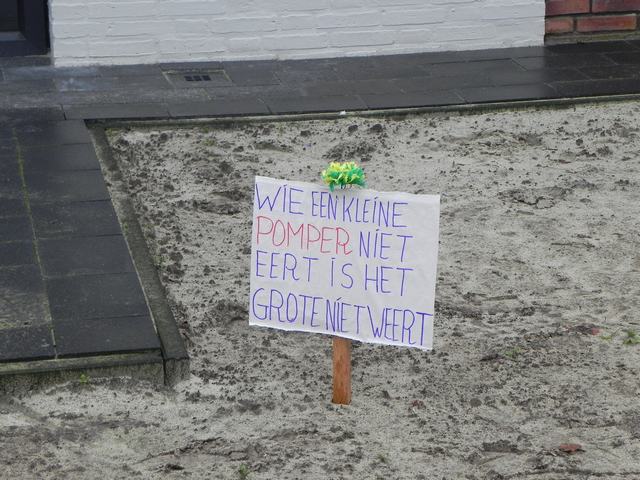 WIE EEN KLEINE
POMPER NIET
EERT IS HET
GROTE NIET WEERT